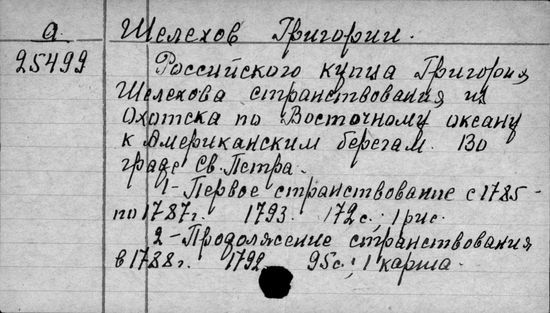 а.
Шелехов Григории.
25499
Российского купца Григория
Шелехова странствования из
Охотска по Восточному океану
к Американским берегам. Во
граде Св. Петра.
1 - Первое странствование с 1785 -
по 1787 г. 1793. 172 с.; 1 рис.
2 - Продолжение странствования
в 1788 г. 1792. 95 с.; 1 карта.